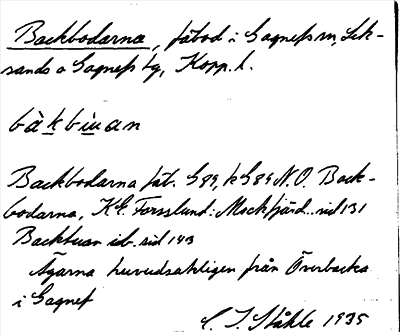 Backbodarna, fäbod i Gagnefs sn, Lek-
sands o Gagnefs tg, Kopp. l.
bàkbiuan
Backbodarna fäb. G89, k G89 N.O. Back-
bodarna, K.E. Forsslund: Mockfjärd.. sid 131
Backbuan ib. sid 143
Ägarna huvudsakligen från Överbacka
i Gagnef
C. I. Ståhle 1935